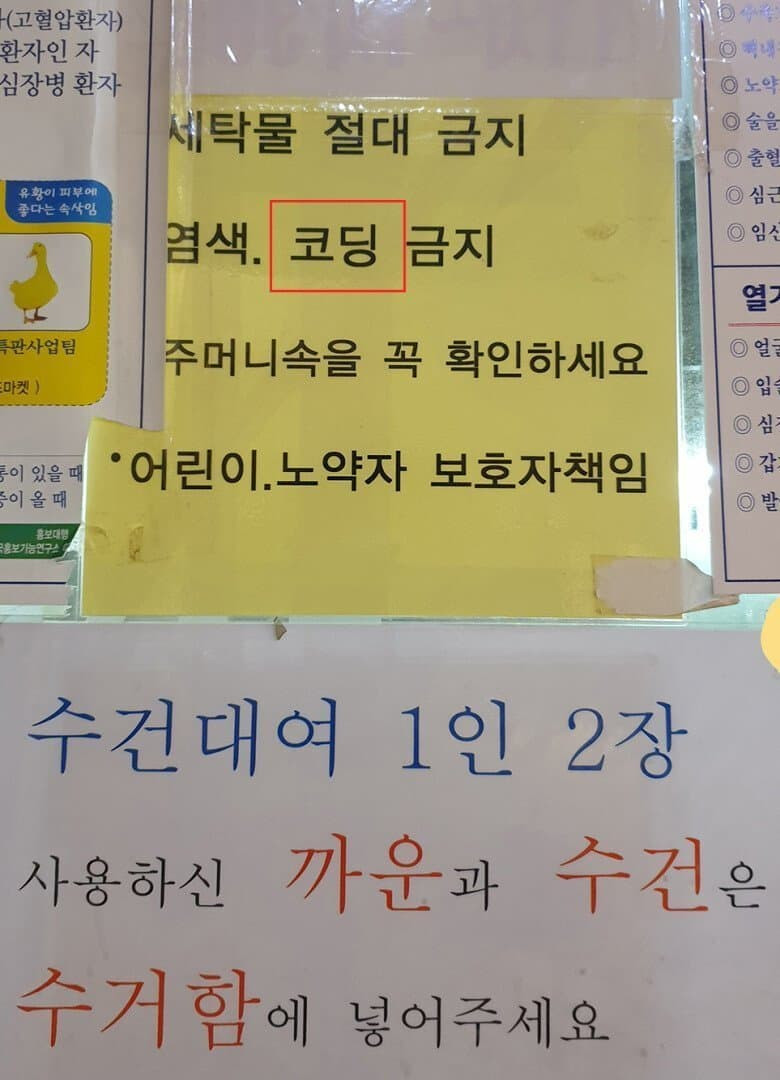 (고혈압환자)
환자인 자
심장병 환자
유황이 피부에
좋다는 속삭임
특판사업팀
마켓 )
이 있을 때
이 올 때
홍보대행
세탁물 절대 금지
염색. 코딩 금지
주머니속을 꼭 확인하세요
•어린이.노약자 보호자책임
◎ 노약
◎ 술을
◎ 출혈
◎ 심근
◎ 임신
◎ 얼굴
◎ 입술
◎ 심장
◎ 갑
◎ 발
수건대여 1인 2장
사용하신 까운과 수건은
수거함에 넣어주세요